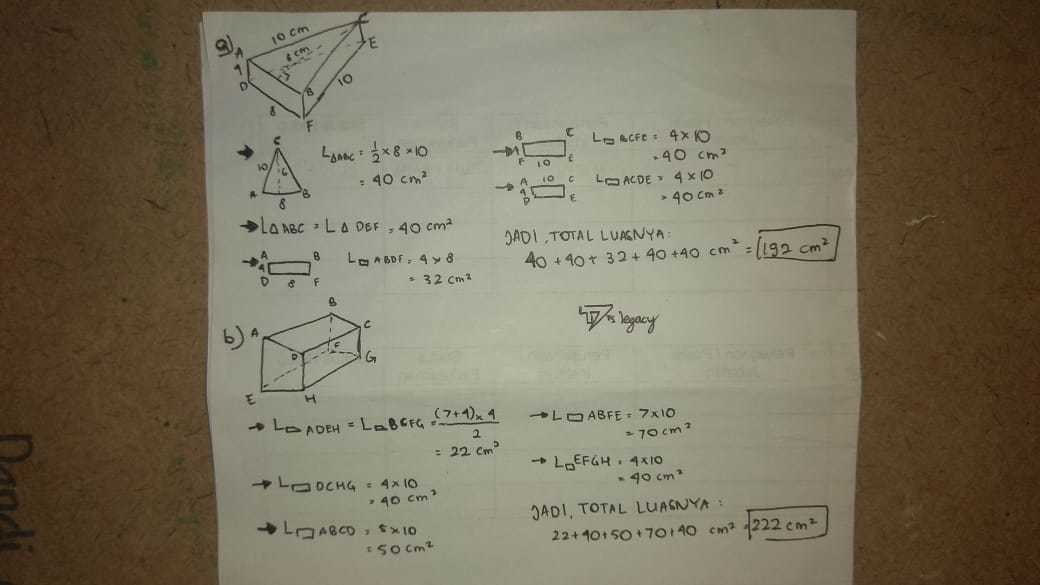 a)
A
10 cm
C
6 cm
E
4
D
B
10
8
F
C
10
6
A
B
8
L△ABC = 1/2 × 8 × 10
= 40 cm²
→ L△ABC = L△DEF = 40 cm²
→ A B
4
D 8 F
L▭ABDF = 4 × 8
= 32 cm²
→ B C
4
F 10 E
L▭BCFE = 4 × 10
= 40 cm²
→ A 10 C
4
D E
L▭ACDE = 4 × 10
= 40 cm²
JADI, TOTAL LUASNYA:
40 + 40 + 32 + 40 + 40 cm² = 192 cm²
legacy
b)
B
A
C
D
F
G
E
H
→ L ADEH = L BCFG = (7+4) × 4 / 2
= 22 cm²
→ L▭DCHG = 4 × 10
= 40 cm²
→ L▭ABCD = 5 × 10
= 50 cm²
→ L▭ABFE = 7 × 10
= 70 cm²
→ L▭EFGH = 4 × 10
= 40 cm²
JADI, TOTAL LUASNYA :
22 + 40 + 50 + 70 + 40 cm² = 222 cm²